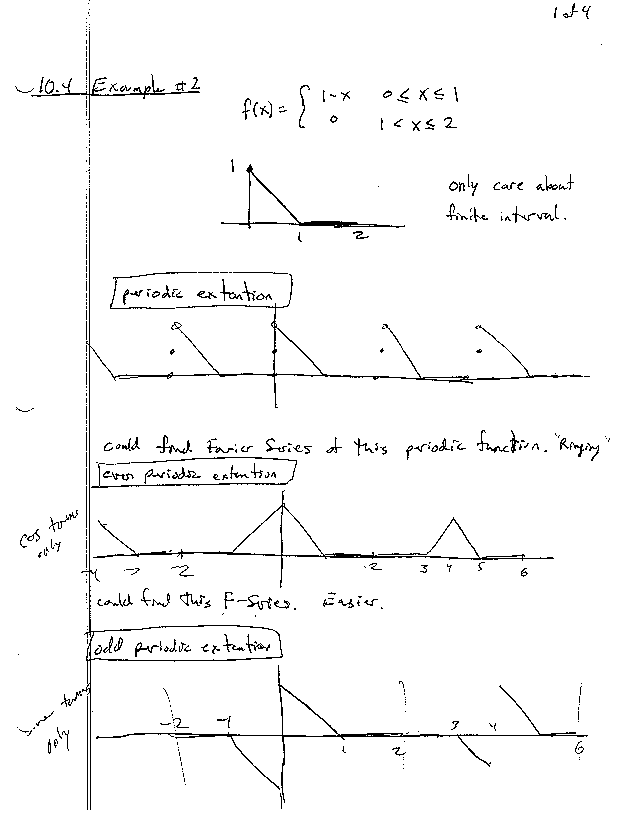 1 of 4
10.4 Example #2
f(x) = { 1-x 0 ≤ x ≤ 1
0 1 < x ≤ 2
1
only care about
finite interval.
1 2
periodic extention
could find Fourier Series of this periodic function. "Ringing"
even periodic extention
cos terms
only
-4 -2 2 3 4 5 6
could find this F-Series. Easier.
odd periodic extention
terms
only
-2 -1 3 4
1 2 6